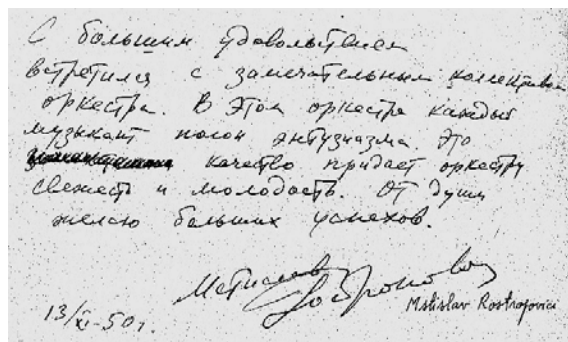 С большим удовольствием
встретился с замечательным коллективом
оркестра. В этом оркестре каждый
музыкант полон энтузиазма это
качество придает оркестру
свежесть и молодость. От души
желаю больших успехов.
Мстислав Ростропович
Mstislav Rostropovici
13/XI-50 г.